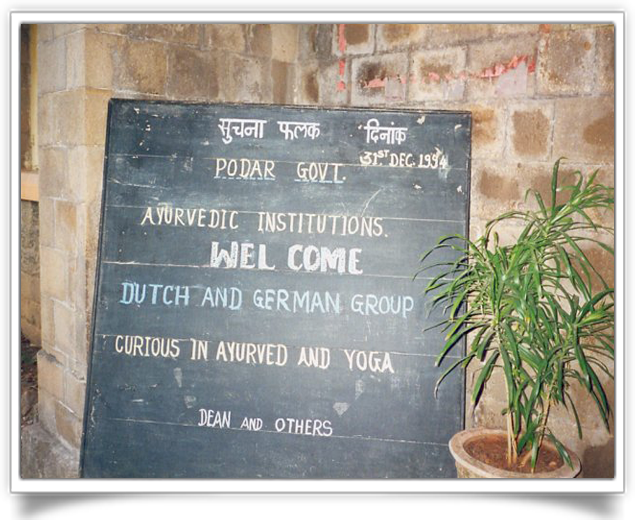 सुचना फलक दिनांक
31ST DEC. 1994
PODAR GOVT.
AYURVEDIC INSTITUTIONS.
WEL COME
DUTCH AND GERMAN GROUP
CURIOUS IN AYURVED AND YOGA
DEAN AND OTHERS